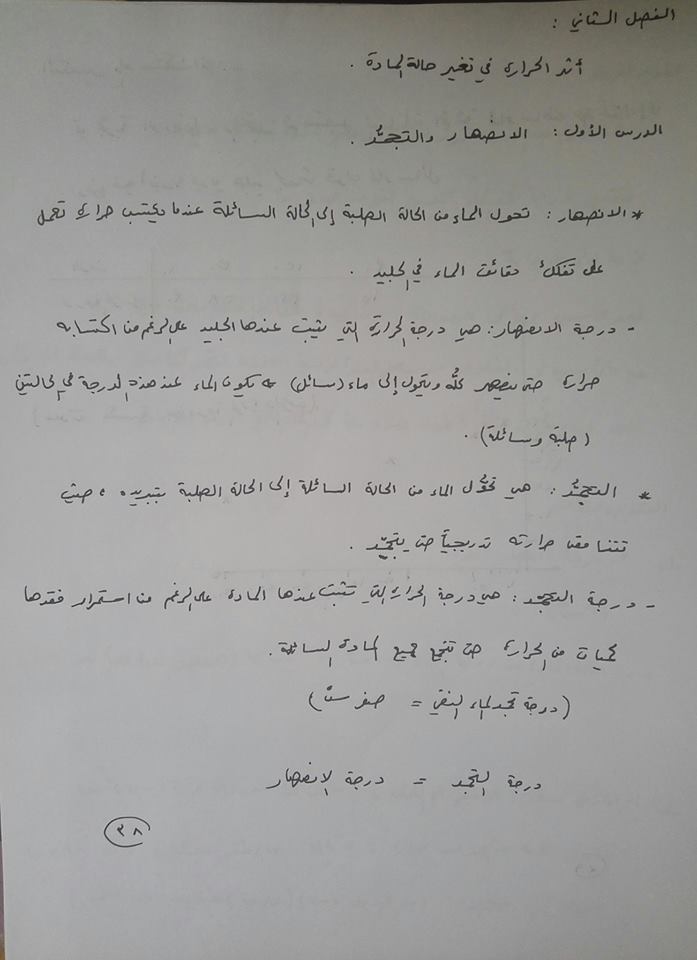 الفصل الثاني :
أثر الحرارة في تغير حالة المادة .
الدرس الأول : الانصهار والتجمُّد .
* الانصهار : تحول الماء من الحالة الصلبة إلى الحالة السائلة عندما يكتسب حرارة تعمل
على تفكك دقائق الماء في الجليد .
- درجة الانصهار : هي درجة الحرارة التي يثبت عندها الجليد على الرغم من اكتسابه
حرارة حتى ينصهر كلُّه ويتحول إلى ماء (سائل) ، يكون الماء عند هذه الدرجة في الحالتين
(صلبة وسائلة) .
* التجمُّد : هي تحوُّل الماء من الحالة السائلة إلى الحالة الصلبة بتبريده ، حيث
تتناقص حرارته تدريجياً حتى يتجمّد .
- درجة التجمّد : هي درجة الحرارة التي تثبت عندها المادة على الرغم من استمرار فقدها
كميات من الحرارة حتى تتجمع جميع المادة السائلة .
(درجة تجمد الماء النقي = صفر سْ)
درجة التجمد = درجة الانصهار
٣٨